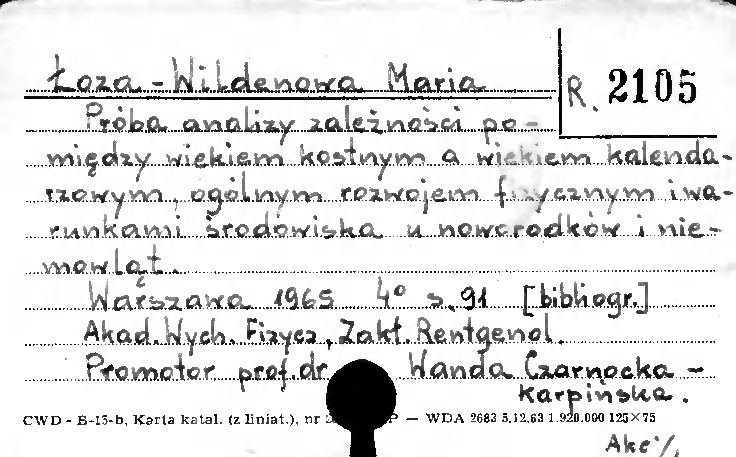 Łoza-Wildenowa Maria
R. 2105
Próba analizy zależności po-
między wiekiem kostnym a wiekiem kalenda-
rzowym, ogólnym rozwojem fizycznym i wa-
runkami środowiska u noworodków i nie-
mowląt.
Warszawa 1965 4° s. 91 [bibliogr.]
Akad. Wych. Fizycz, Zakt. Rentgenol.
Promotor prof. dr Wanda Czarnocka-
Karpińska.
CWD - B-15-b, Karta katal. (z liniat.), nr — WDA 2683 5.12.63 1.920.000 125×75